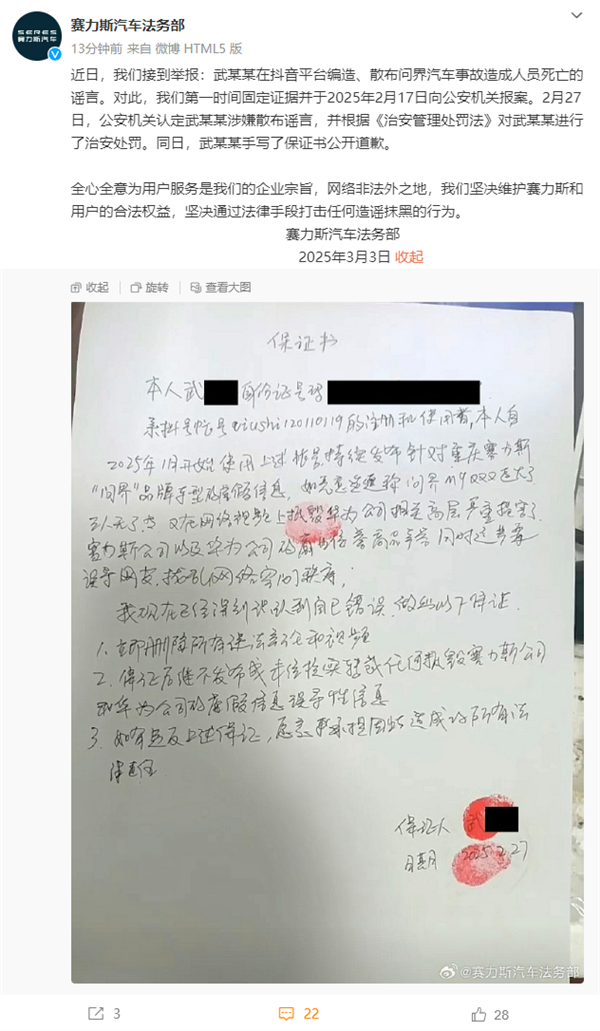 赛力斯汽车法务部
SERES
赛力斯汽车
13分钟前 来自 微博 HTML5 版
近日，我们接到举报：武某某在抖音平台编造、散布问界汽车事故造成人员死亡的
谣言。对此，我们第一时间固定证据并于2025年2月17日向公安机关报案。2月27
日，公安机关认定武某某涉嫌散布谣言，并根据《治安管理处罚法》对武某某进行
了治安处罚。同日，武某某手写了保证书公开道歉。
全心全意为用户服务是我们的企业宗旨，网络非法外之地，我们坚决维护赛力斯和
用户的合法权益，坚决通过法律手段打击任何造谣抹黑的行为。
赛力斯汽车法务部
2025年3月3日 收起
收起 旋转 查看大图
保证书
本人武 身份证号码
系抖音账号qiushi120110119的注册和使用者,本人自
2025年1月开始使用上述账号持续发布针对重庆赛力斯
"问界"品牌车型的虚假信息，如 称问界M9
又在网络视频上抵毁华为公司相关高层严重损害了
赛力斯公司以及华为公司的商业信誉商品声誉同时这些
误导网友，扰乱网络空间秩序；
我现在已经深刻认识到自己错误，做出以下保证.
1. 立即删除所有违法言论和视频
2. 保证后继不发布或未经核实转载任何抵毁赛力斯公司
和华为公司的虚假信息误导性信息
3. 如有违反上述保证，愿意承担因此造成的所有法
律责任
保证人 武
日期 2025.2.27
@赛力斯汽车法务部
3
22
28